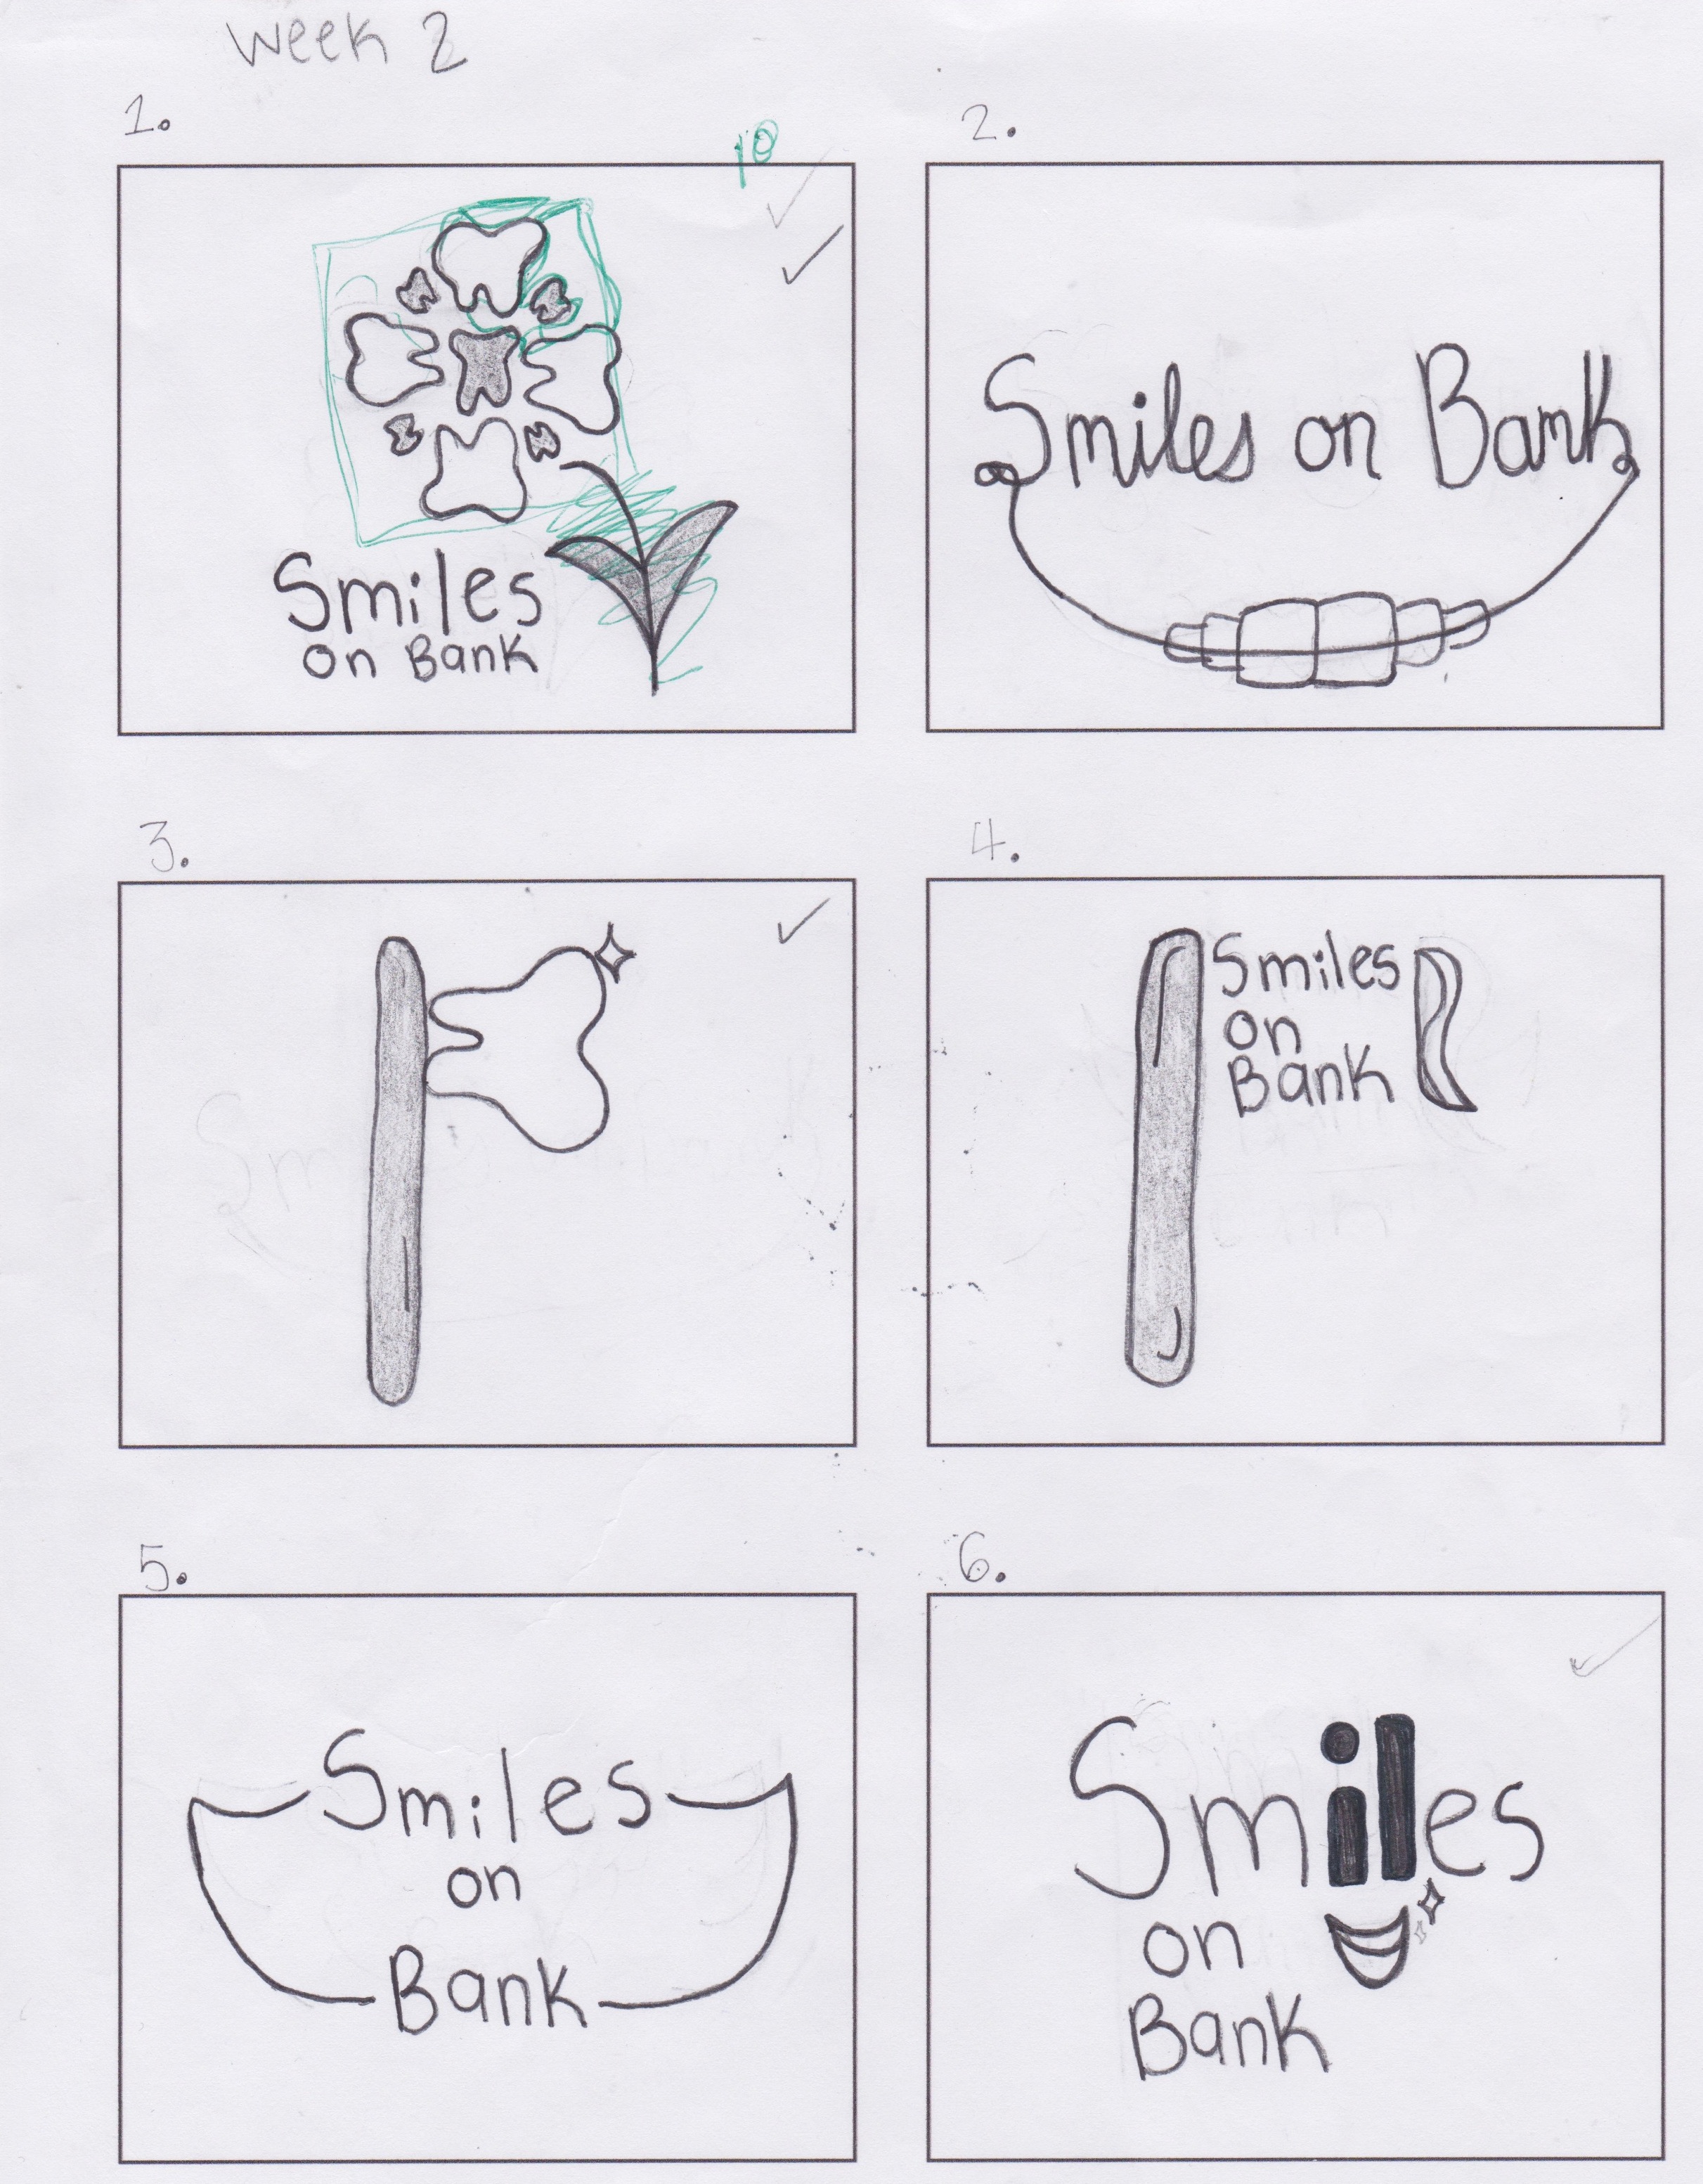 Week 2
1.
10
Smiles
on Bank
2.
Smiles on Bank
3.
4.
Smiles
on
Bank
5.
Smiles
on
Bank
6.
Smiles
on
Bank